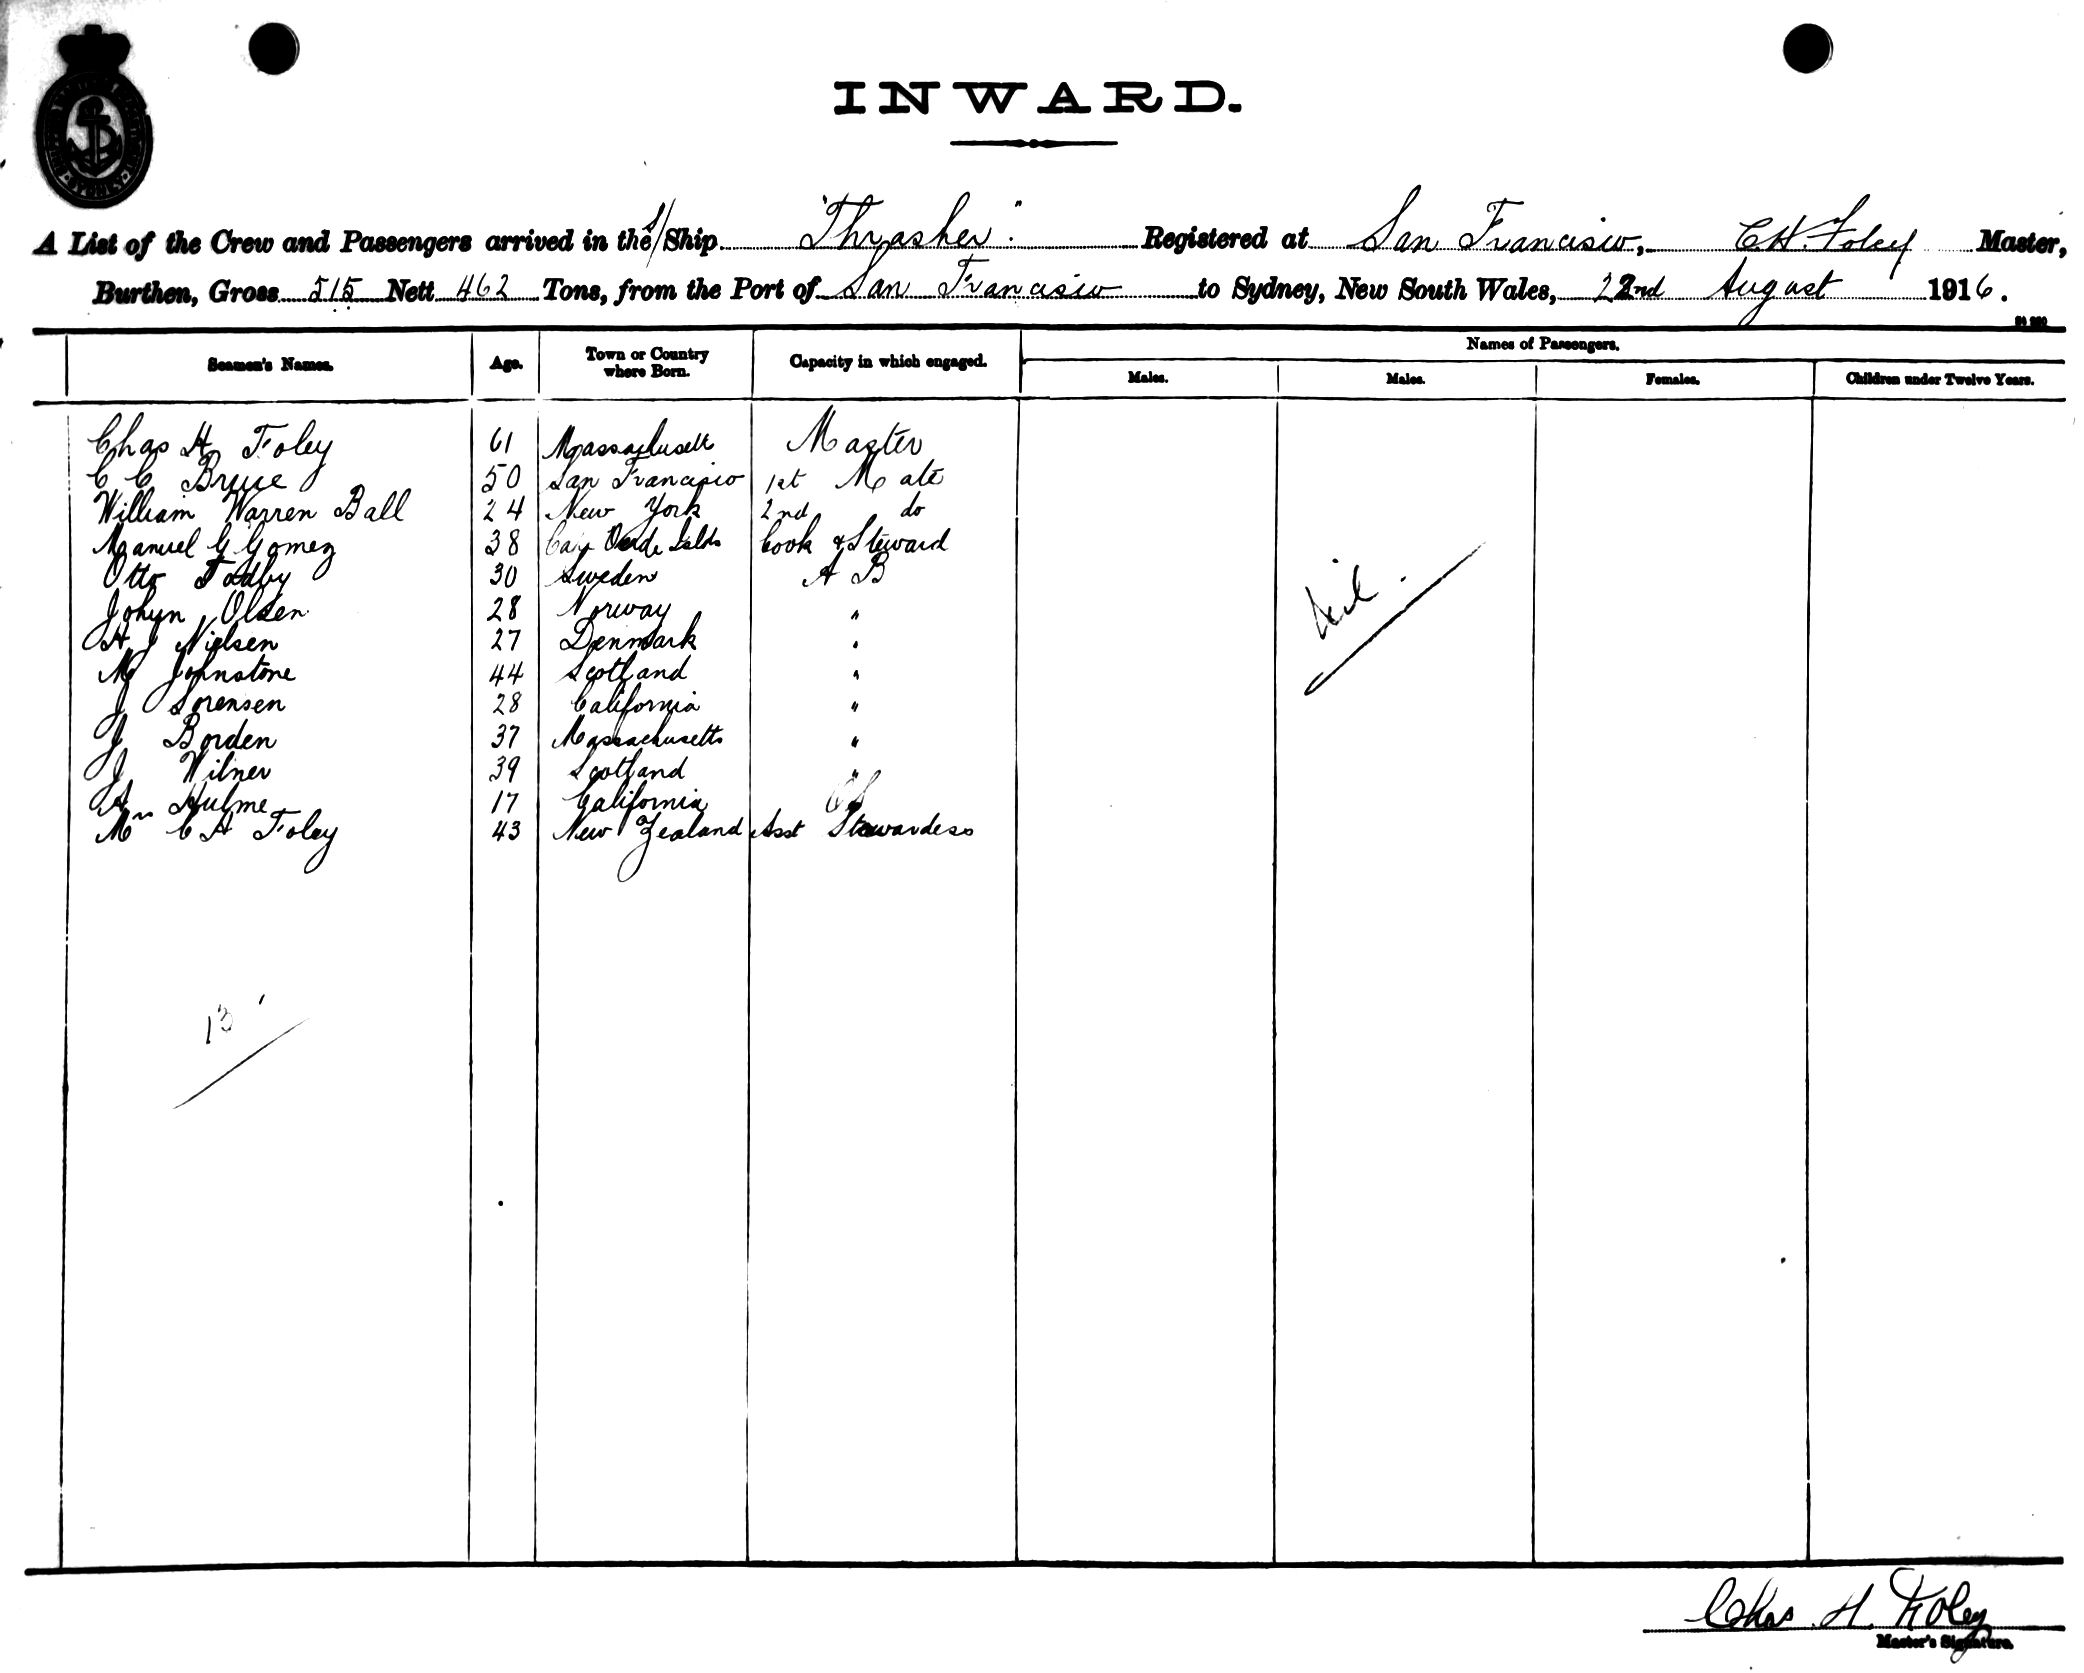 INWARD.
A List of the Crew and Passengers arrived in the S/Ship "Thrasher". Registered at San Francisco, C.H. Foley Master,
Burthen, Gross 515 Nett 462 Tons, from the Port of San Francisco to Sydney, New South Wales, 22nd August 1916.
Names of Passengers.
Seamen's Names. Age. Town or Country where Born. Capacity in which engaged. Males. Males. Females. Children under Twelve Years.
Chas H Foley 61 Massachusett Master
C C Bruce 50 San Francisco 1st Mate
William Warren Ball 24 New York 2nd do
Manuel G Gomez 38 Cape Verde Islds Cook & Steward
Otto 30 Sweden A B
Johyn Olsen 28 Norway "
H J Nielsen 27 Denmark "
M Johnstone 44 Scotland "
J Sorensen 28 California "
J Borden 37 Massachusetts "
J Wilner 39 Scotland "
A Hulme 17 California OS
Mrs C H Foley 43 New Zealand Asst Stewardess
Nil.
13
Chas. H. Foley
Master's Signature.